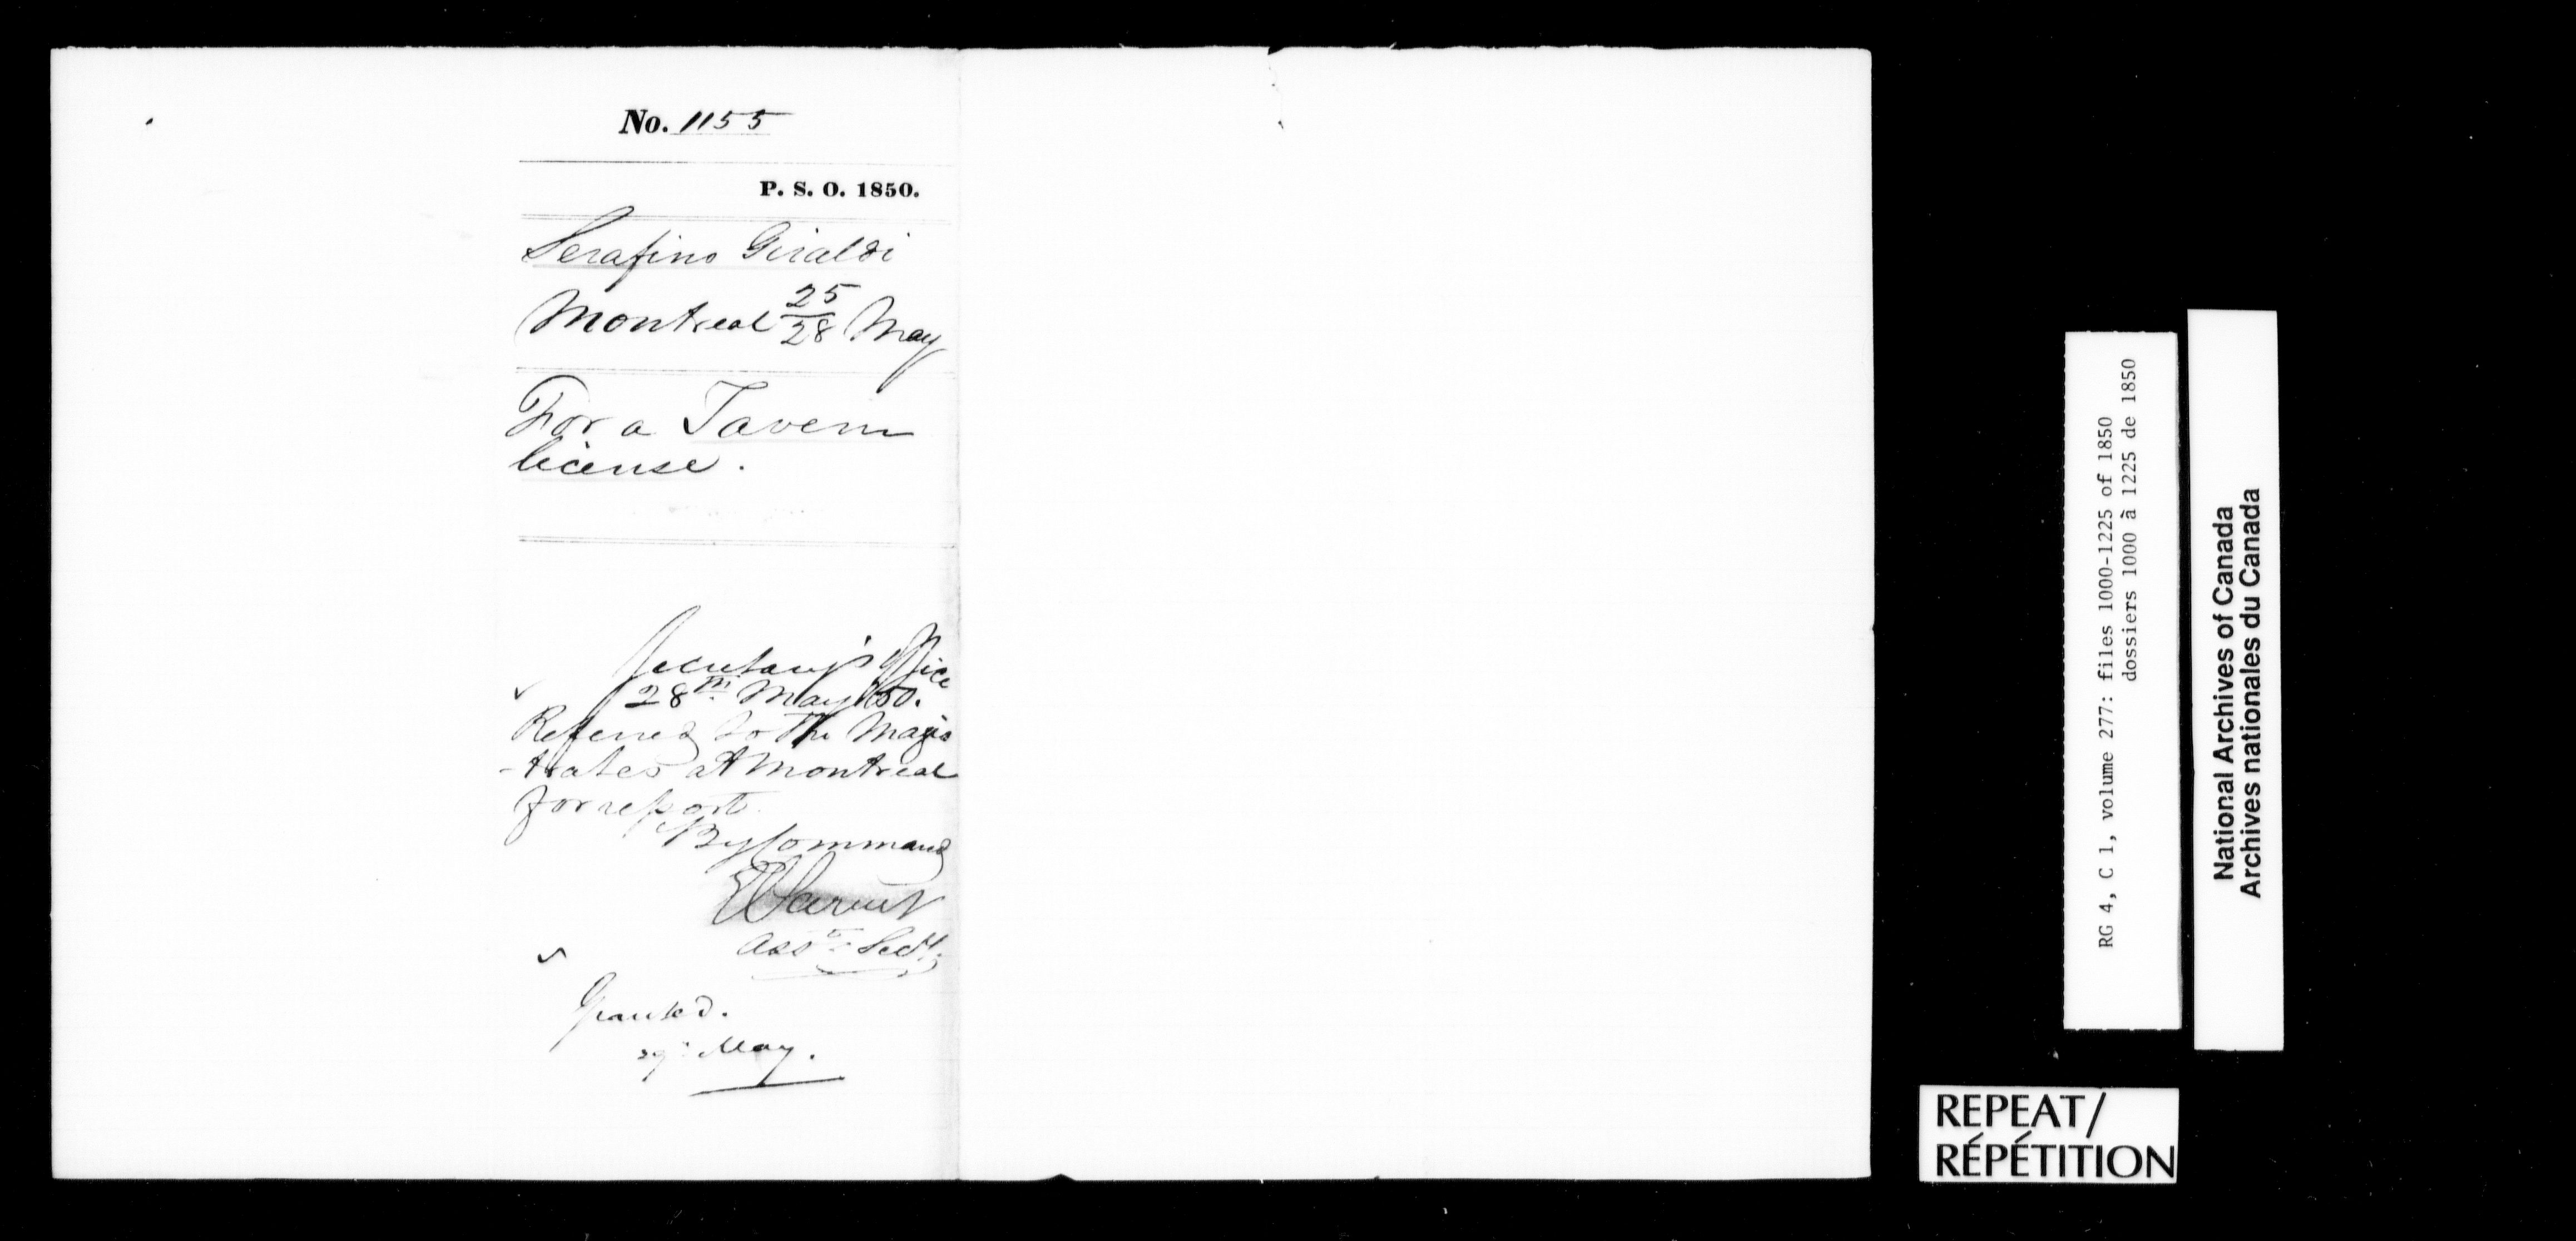 No. 1155
P. S. O. 1850.
Serafino Giraldi
Montreal 25/28 May
For a Tavern
license.
Secretary's Office
28th May 1850.
Referred to the Magis
-trates at Montreal
for report.
By Command
E Parent
Asst Secy
Granted.
29th May.
RG 4, C 1, volume 277: files 1000-1225 of 1850
dossiers 1000 à 1225 de 1850
National Archives of Canada
Archives nationales du Canada
REPEAT/
RÉPÉTITION